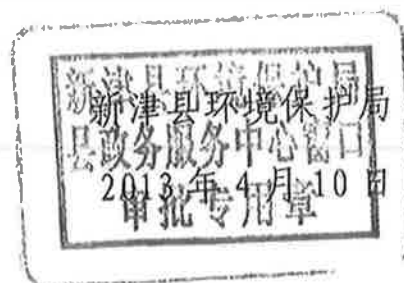 新津县环境保护局
县政务服务中心窗口
审批专用章
新津县环境保护局
2013年4月10日